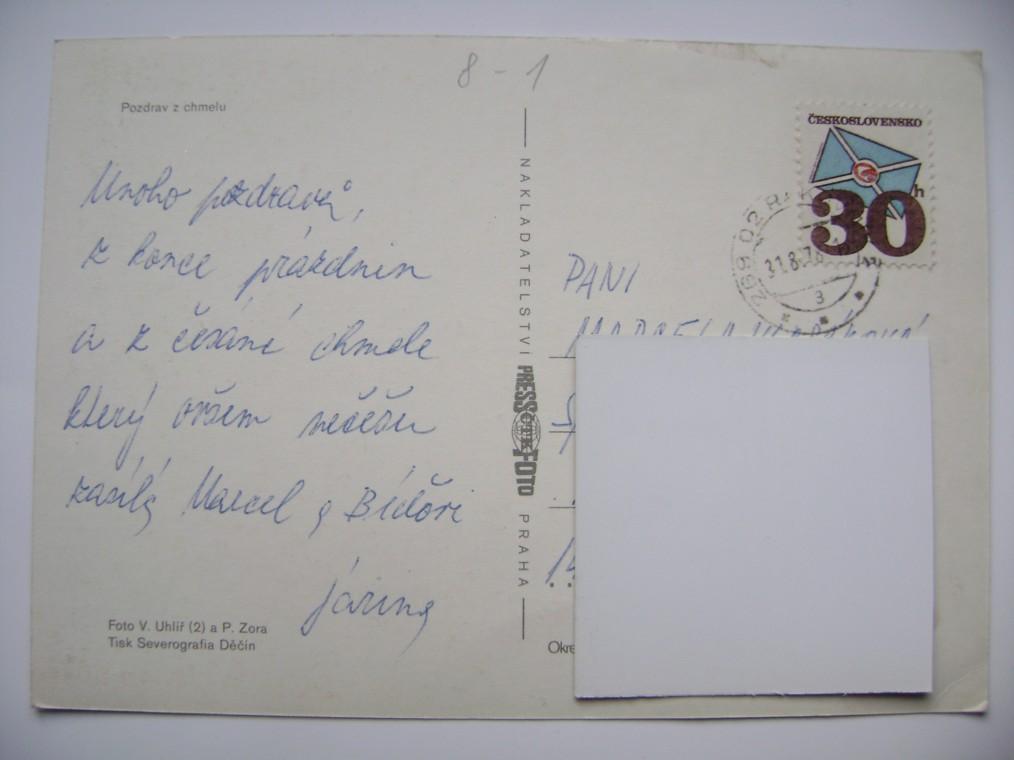 8 - 1
Pozdrav z chmelu
ČESKOSLOVENSKO
30 h
Mnoho pozdravů,
z konce prázdnin
a z česání chmele
který ovšem nečešu
zasílá Marcel a
Jarina
269 02 RAK
31.8.76
3
PANI
NAKLADATELSTVÍ PRESSFOTO PRAHA
ČTK
Foto V. Uhlíř (2) a P. Zora
Tisk Severografia Děčín
Okre